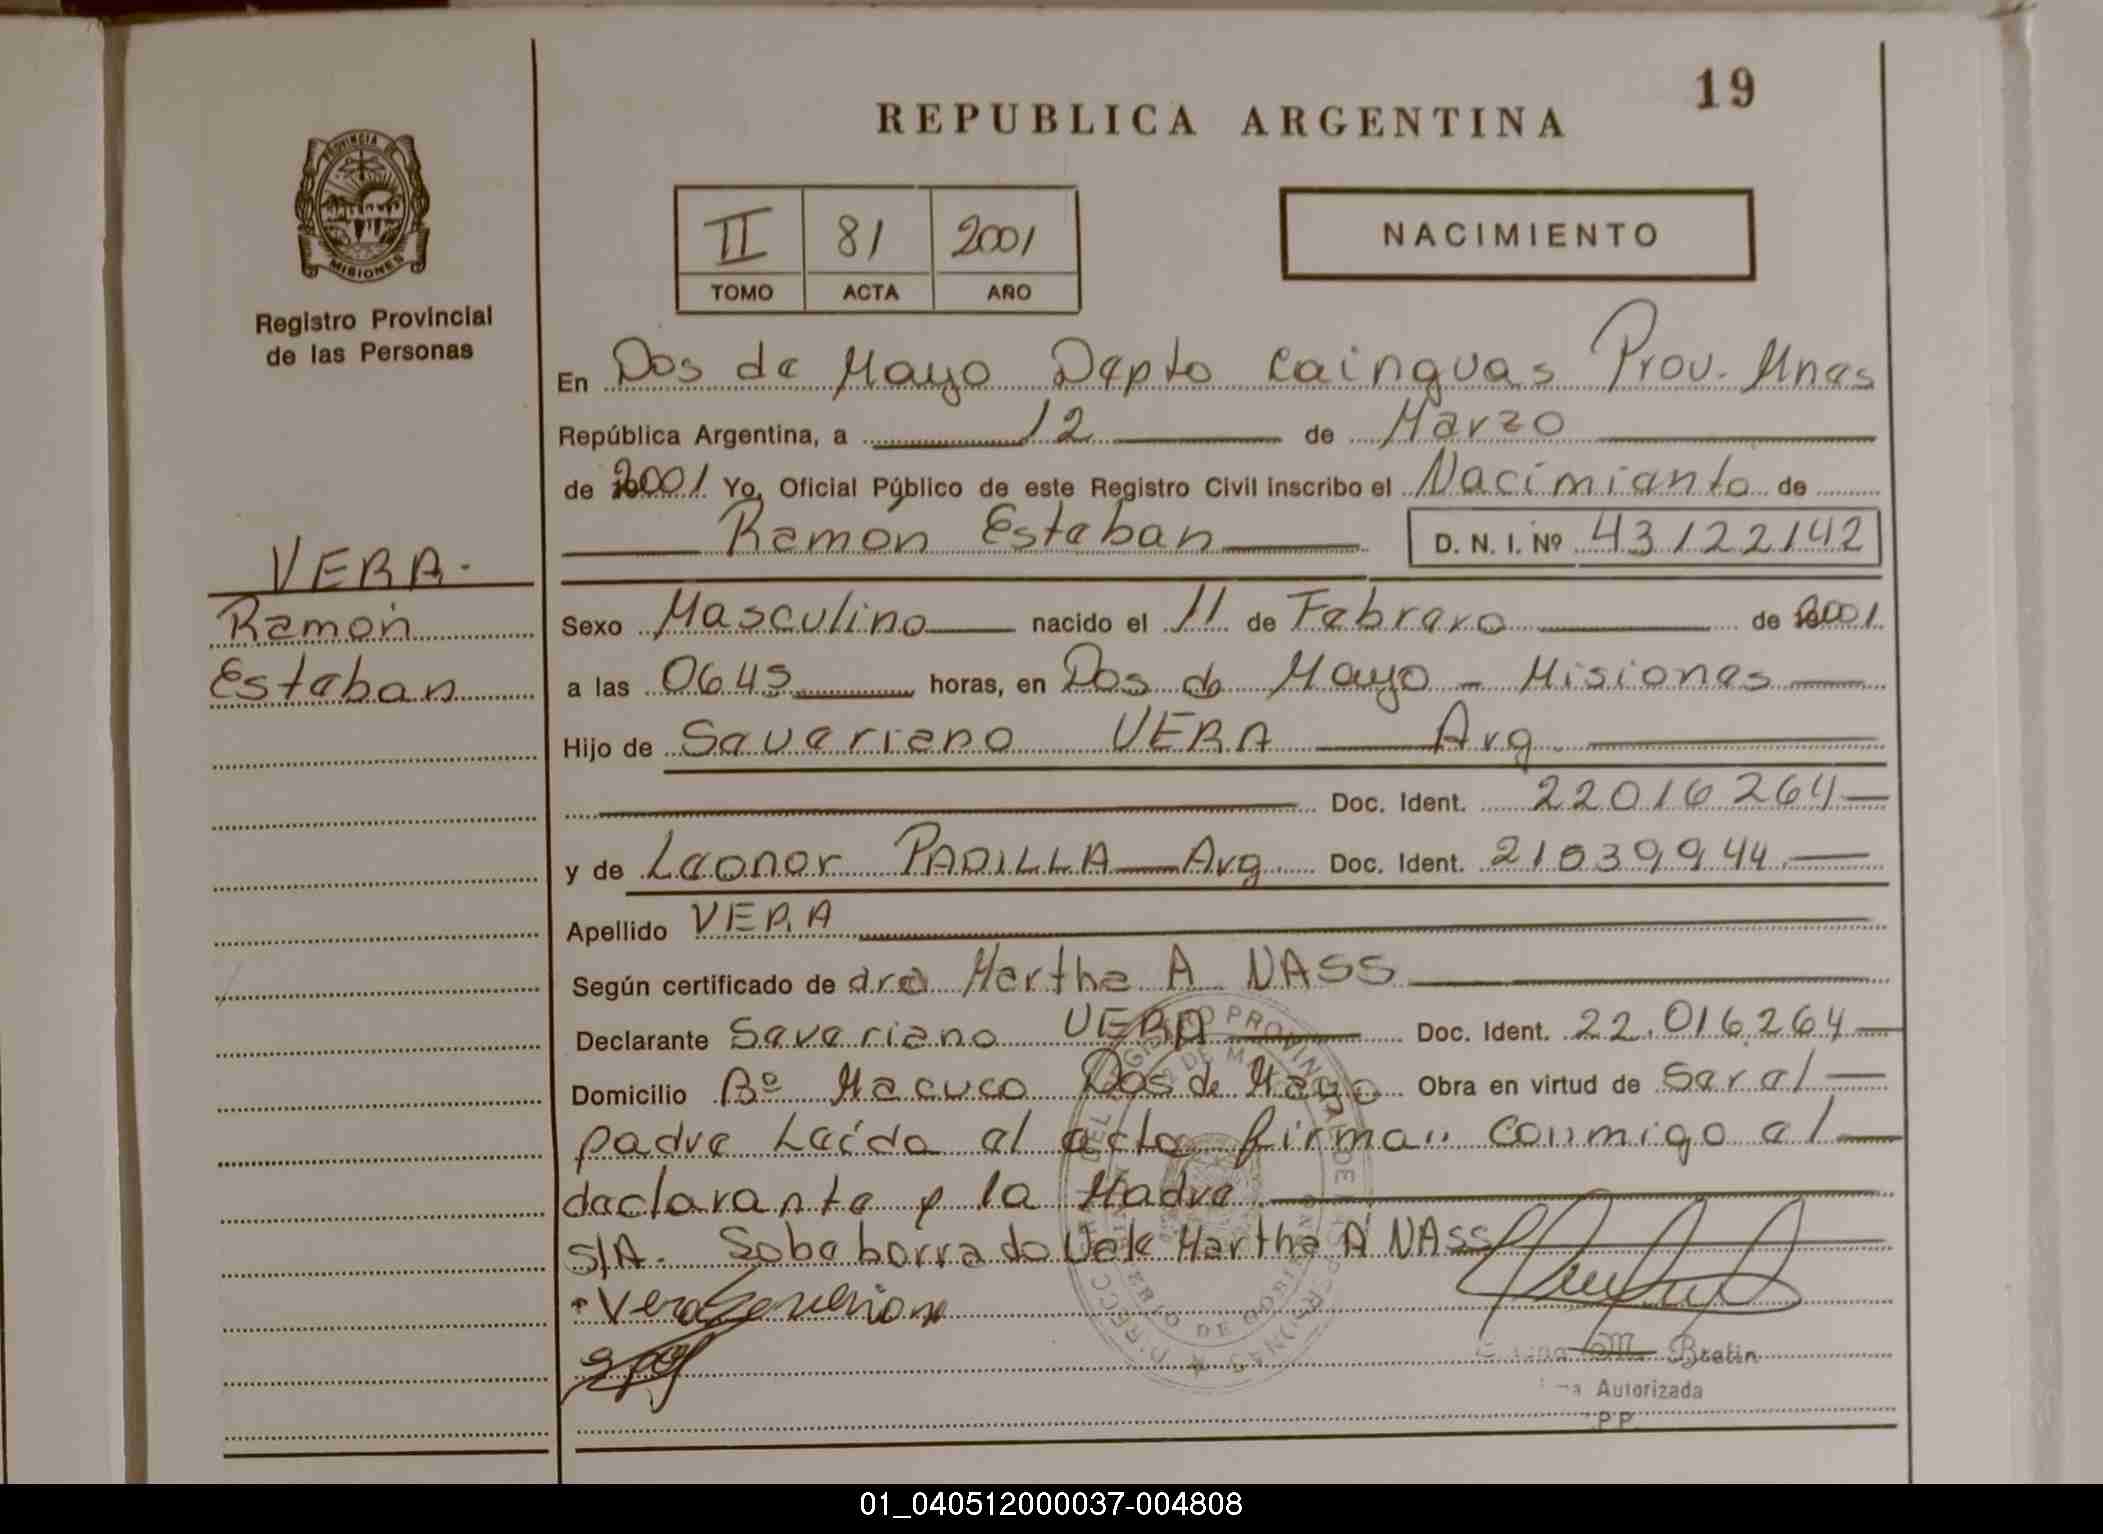 19
REPUBLICA ARGENTINA
PROVINCIA DE
MISIONES
Registro Provincial
de las Personas
II 81 2001
TOMO ACTA AÑO
NACIMIENTO
En Dos de Mayo Depto Cainguas Prov. Mnes
República Argentina, a 12 de Marzo
de 2001 Yo, Oficial Público de este Registro Civil inscribo el Nacimiento de
Ramon Esteban D. N. I. Nº 43122142
VERA.
Ramón
Esteban
Sexo Masculino nacido el 11 de Febrero de 2001
a las 0645 horas, en Dos de Mayo - Misiones
Hijo de Saveriano VERA Arg
Doc. Ident. 22016264
y de Leonor PADILLA Arg Doc. Ident. 21039944
Apellido VERA
Según certificado de dra Martha A NASS
Declarante Saveriano VERA Doc. Ident. 22.016.264
Domicilio Bº Macuco Dos de Mayo Obra en virtud de Ser el
padre Leído el acto firman conmigo el
declarante y la Madre
S/A. Sobe borrado Vale Martha A NASS
Vera Severiano
M. Bretin
Autorizada